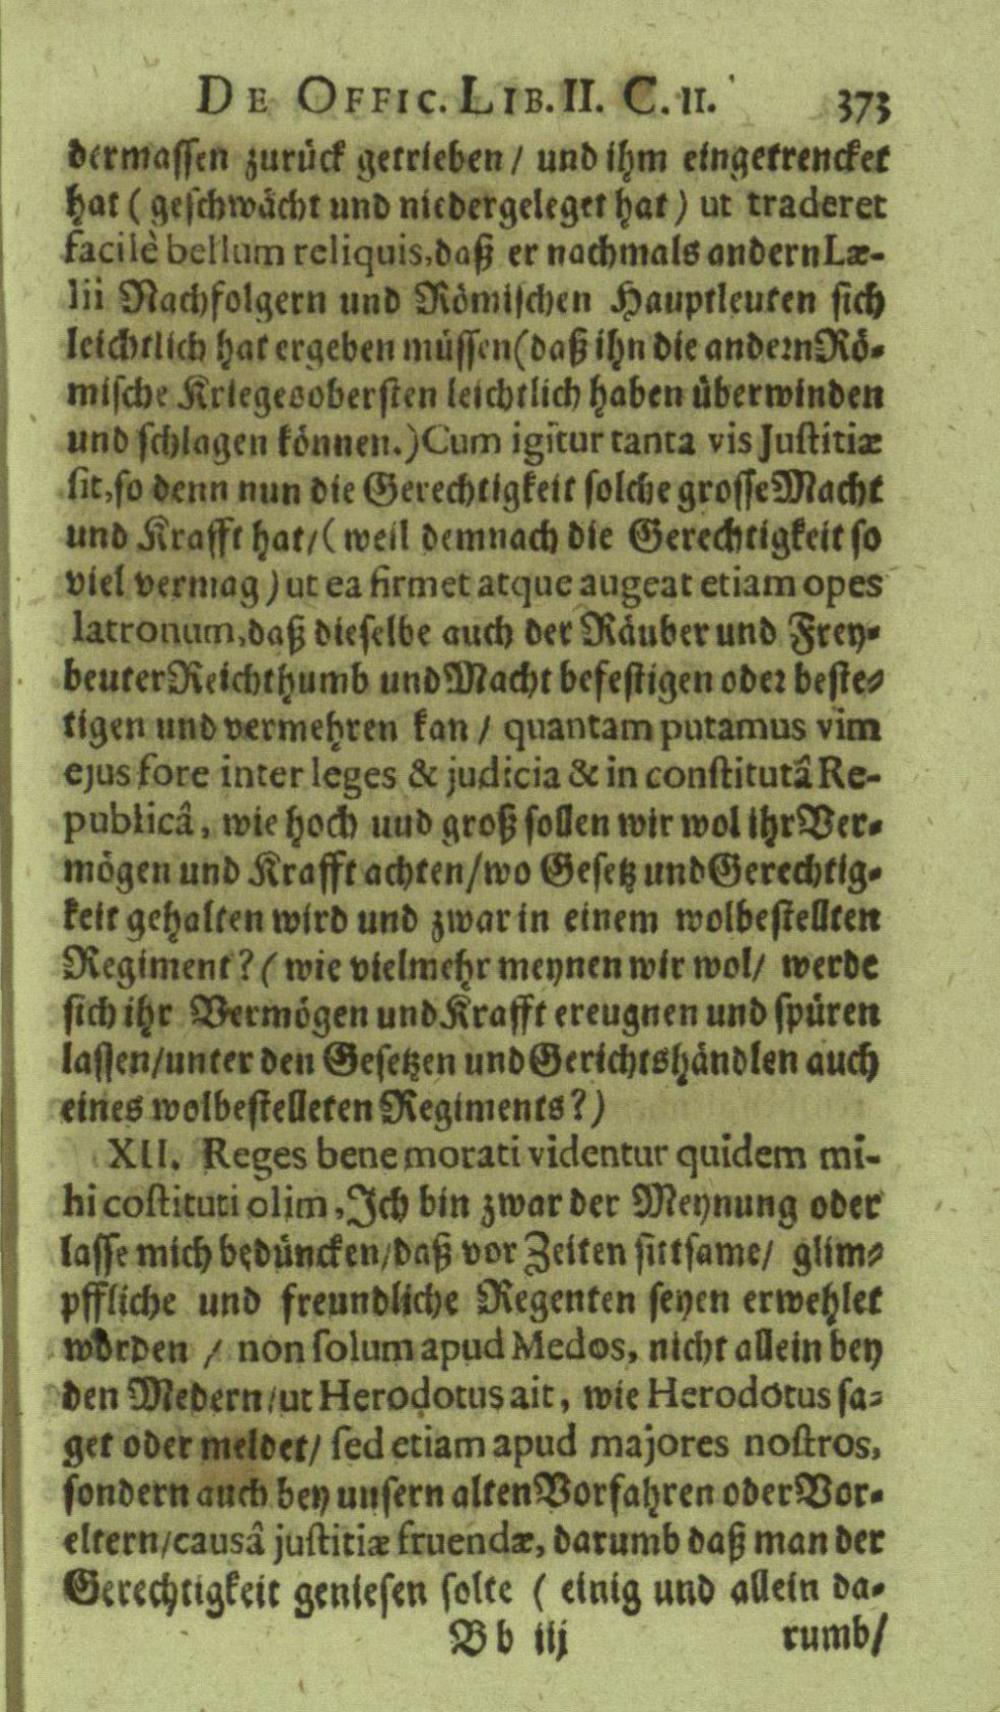 DE OFFIC. LIB. II. C. II. 373
dermassen zurück getrieben / und ihm eingetrencket
hat ( geschwächt und niedergeleget hat ) ut traderet
facilè bellum reliquis, daß er nachmals andern Læ-
lii Nachfolgern und Römischen Hauptleuten sich
leichtlich hat ergeben müssen (daß ihn die andern Rö-
mische Kriegesobersten leichtlich haben überwinden
und schlagen können.) Cum igitur tanta vis Justitiæ
sit, so denn nun die Gerechtigkeit solche grosse Macht
und Krafft hat / ( weil demnach die Gerechtigkeit so
viel vermag ) ut ea firmet atque augeat etiam opes
latronum, daß dieselbe auch der Räuber und Frey-
beuter Reichthumb und Macht befestigen oder beste-
tigen und vermehren kan / quantam putamus vim
ejus fore inter leges & judicia & in constitutâ Re-
publicâ, wie hoch uud groß sollen wir wol ihr Ver-
mögen und Krafft achten / wo Gesetz und Gerechtig-
keit gehalten wird und zwar in einem wolbestellten
Regiment? ( wie vielmehr meynen wir wol / werde
sich ihr Vermögen und Krafft ereugnen und spüren
lassen / unter den Gesetzen und Gerichtshändlen auch
eines wolbestelleten Regiments? )
XII. Reges bene morati videntur quidem mi-
hi costituti olim, Ich bin zwar der Meynung oder
lasse mich bedüncken / daß vor Zeiten sittsame / glim-
pffliche und freundliche Regenten seyen erwehlet
worden / non solum apud Medos, nicht allein bey
den Medern / ut Herodotus ait, wie Herodotus sa-
get oder meldet / sed etiam apud majores nostros,
sondern auch bey unsern alten Vorfahren oder Vor-
eltern / causâ justitiæ fruendæ, darumb daß man der
Gerechtigkeit geniesen solte ( einig und allein da-
B b iij rumb /